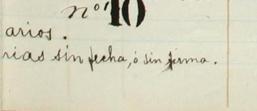 nº 10
arios.
rias sin fecha, ó sin firma.